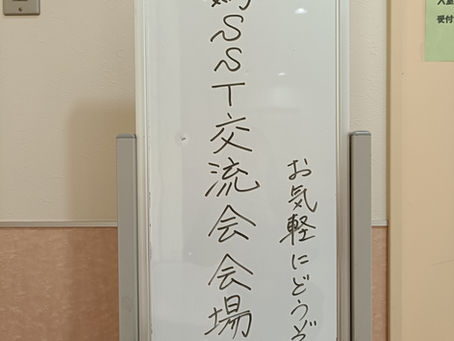 SST交流会会場
お気軽にどうぞ
受付